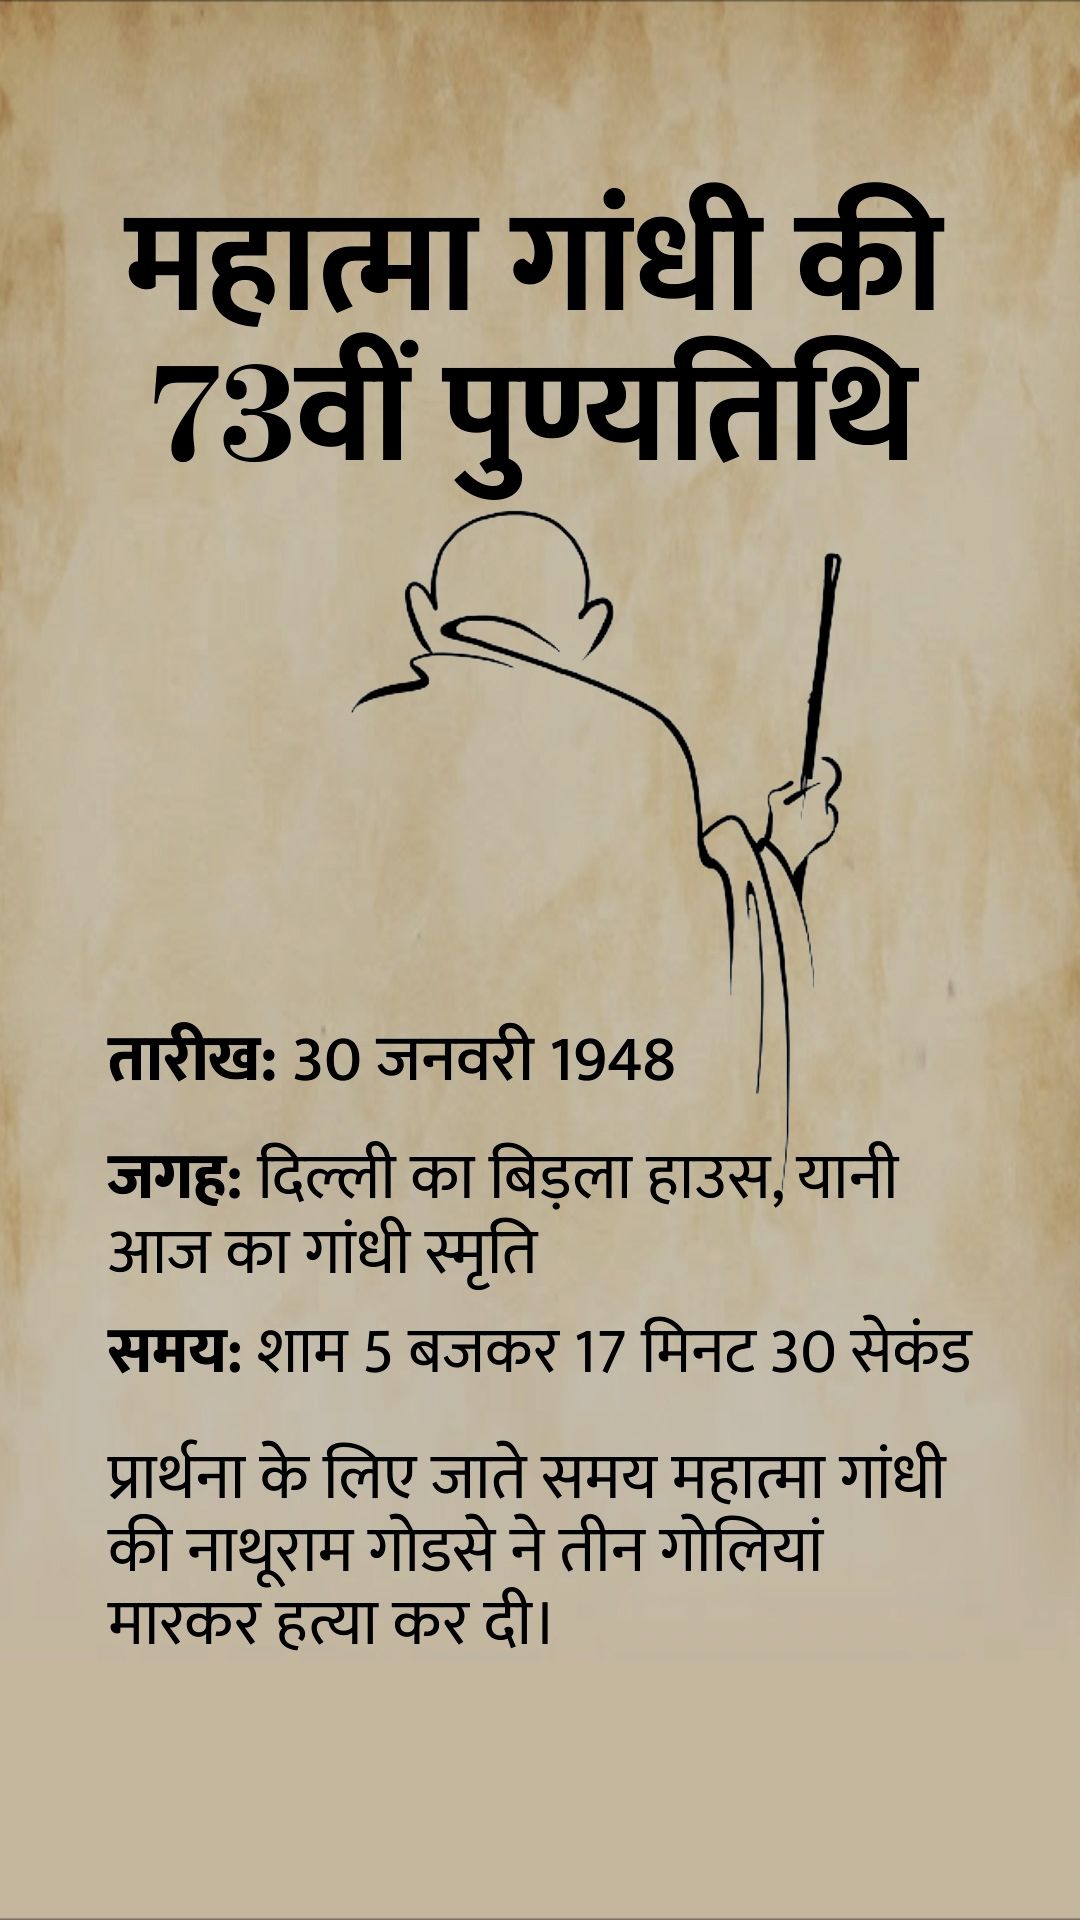 महात्मा गांधी की
73वीं पुण्यतिथि
तारीख: 30 जनवरी 1948
जगह: दिल्ली का बिड़ला हाउस, यानी
आज का गांधी स्मृति
समय: शाम 5 बजकर 17 मिनट 30 सेकंड
प्रार्थना के लिए जाते समय महात्मा गांधी
की नाथूराम गोडसे ने तीन गोलियां
मारकर हत्या कर दी।